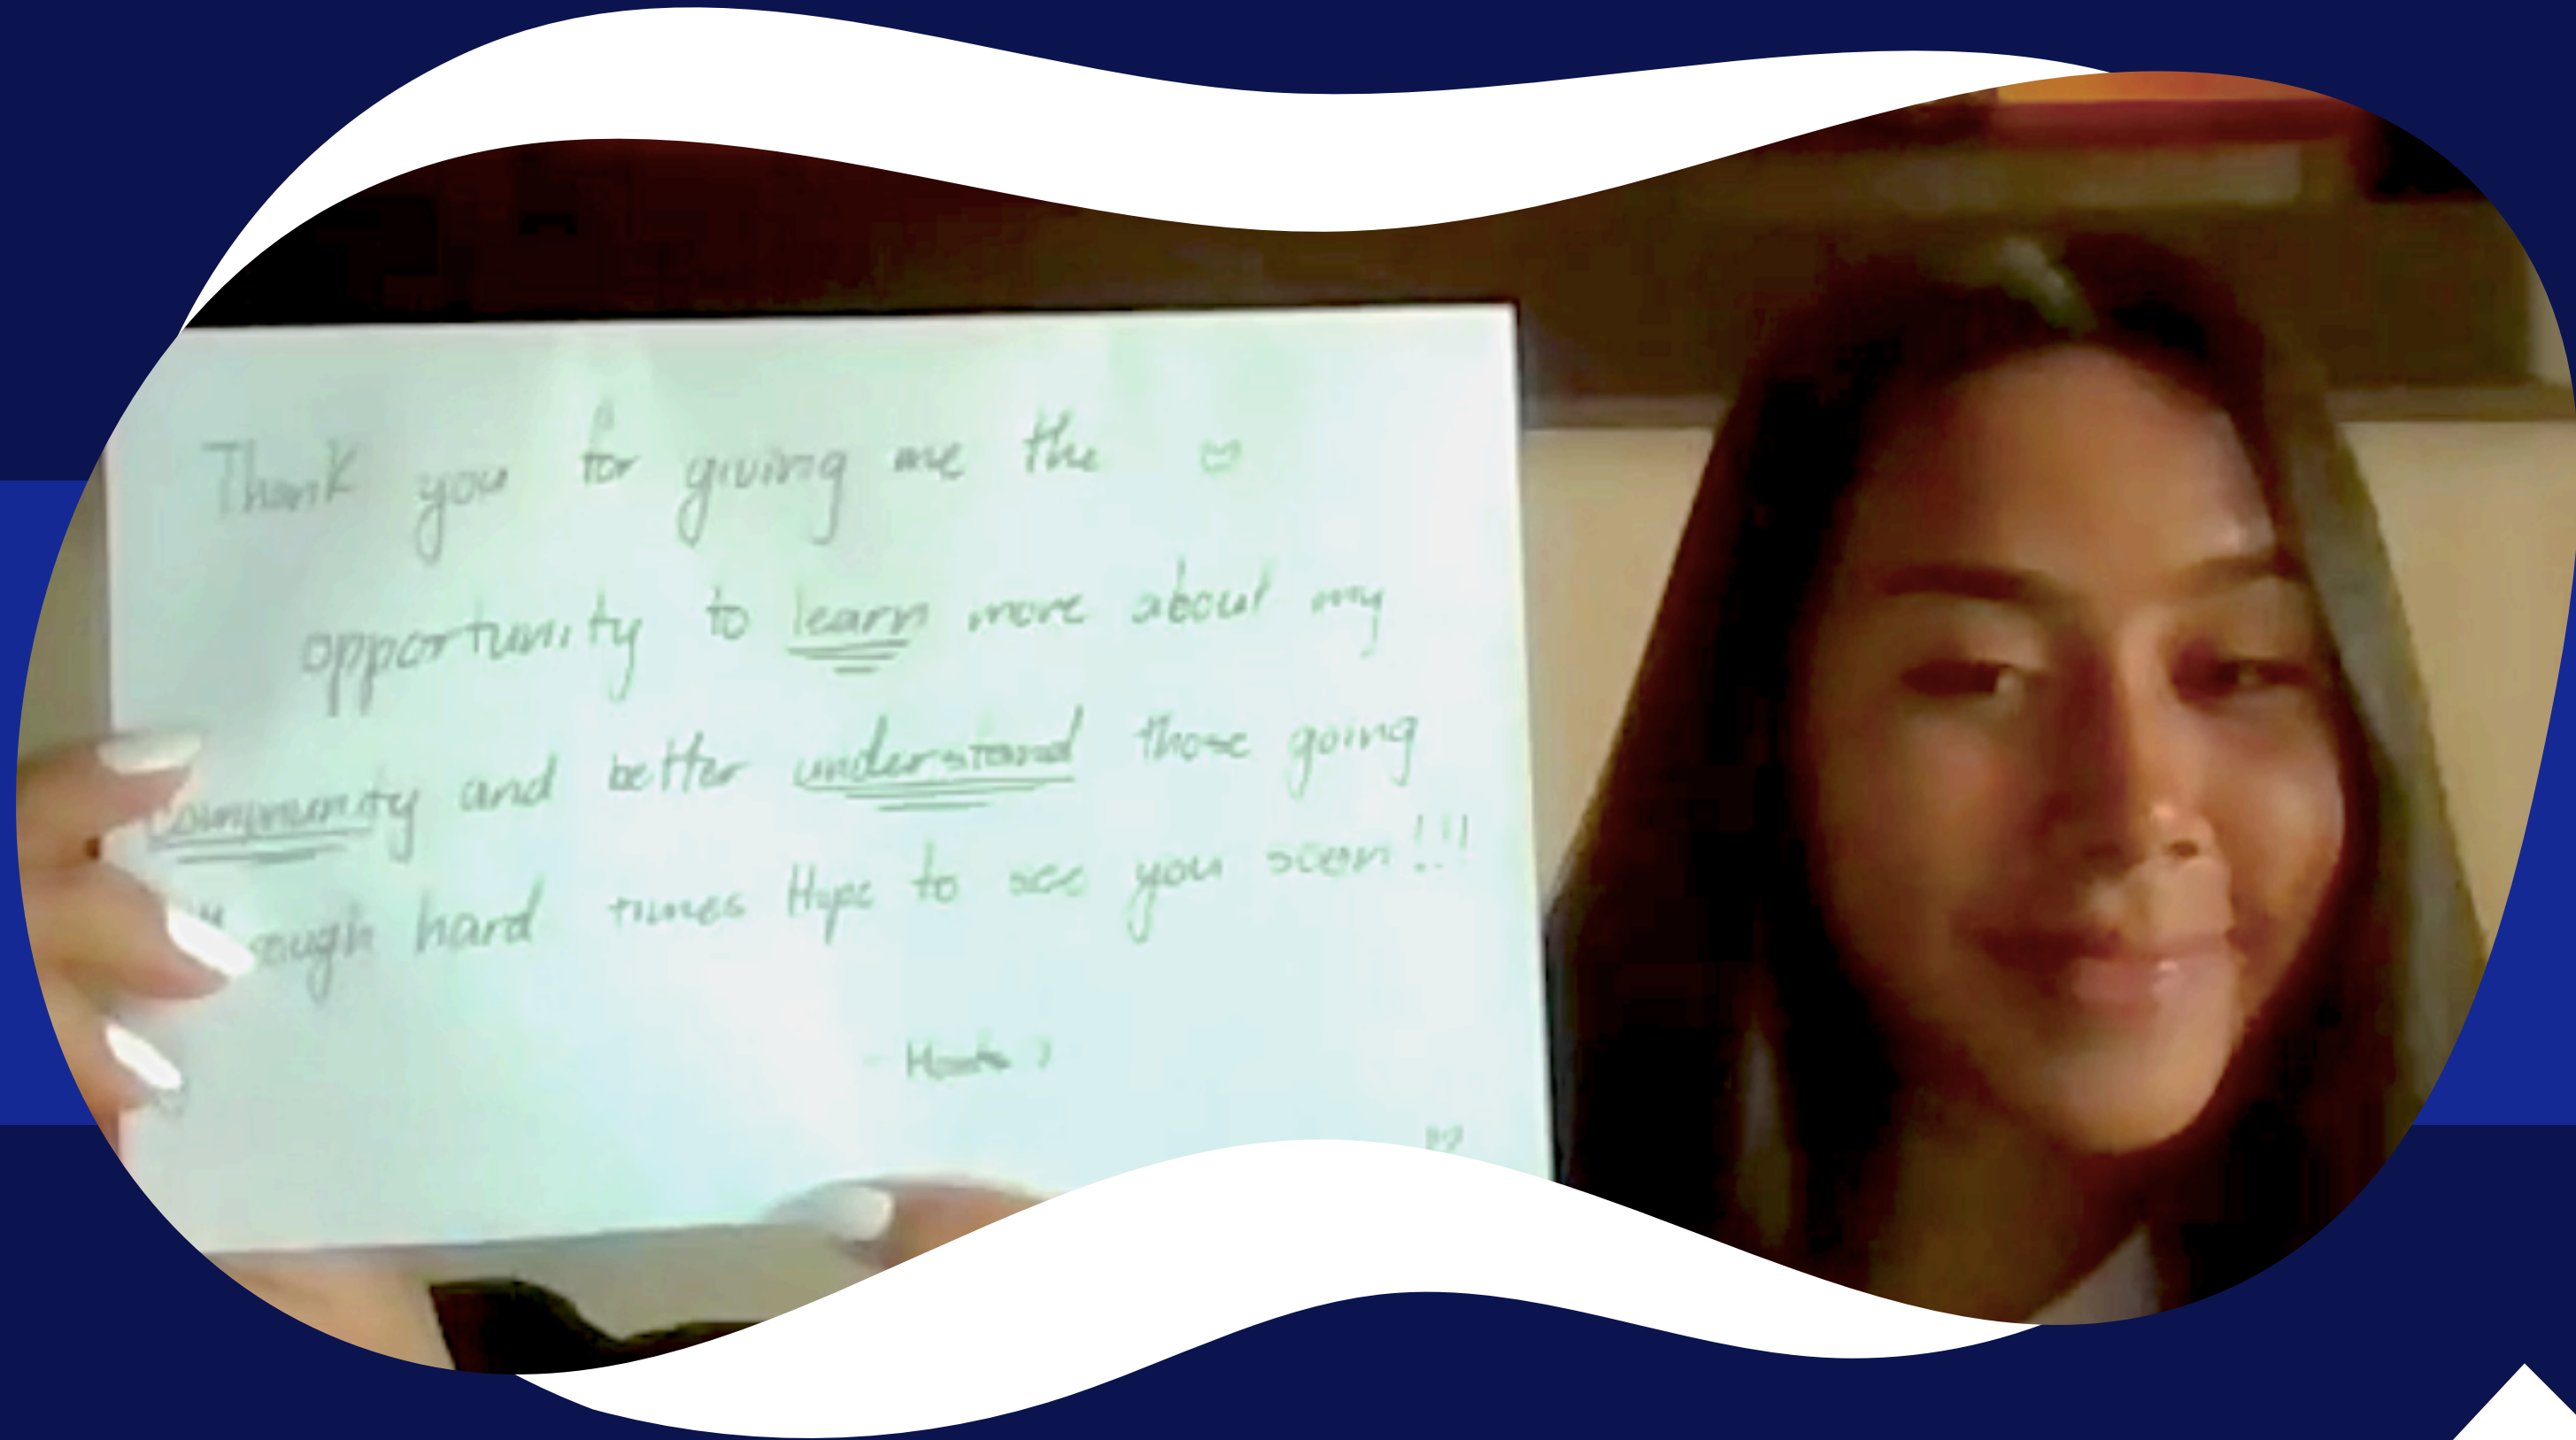 Thank you for giving me the ♡
opportunity to learn more about my
community and better understand those going
rough hard times Hope to see you soon!!!